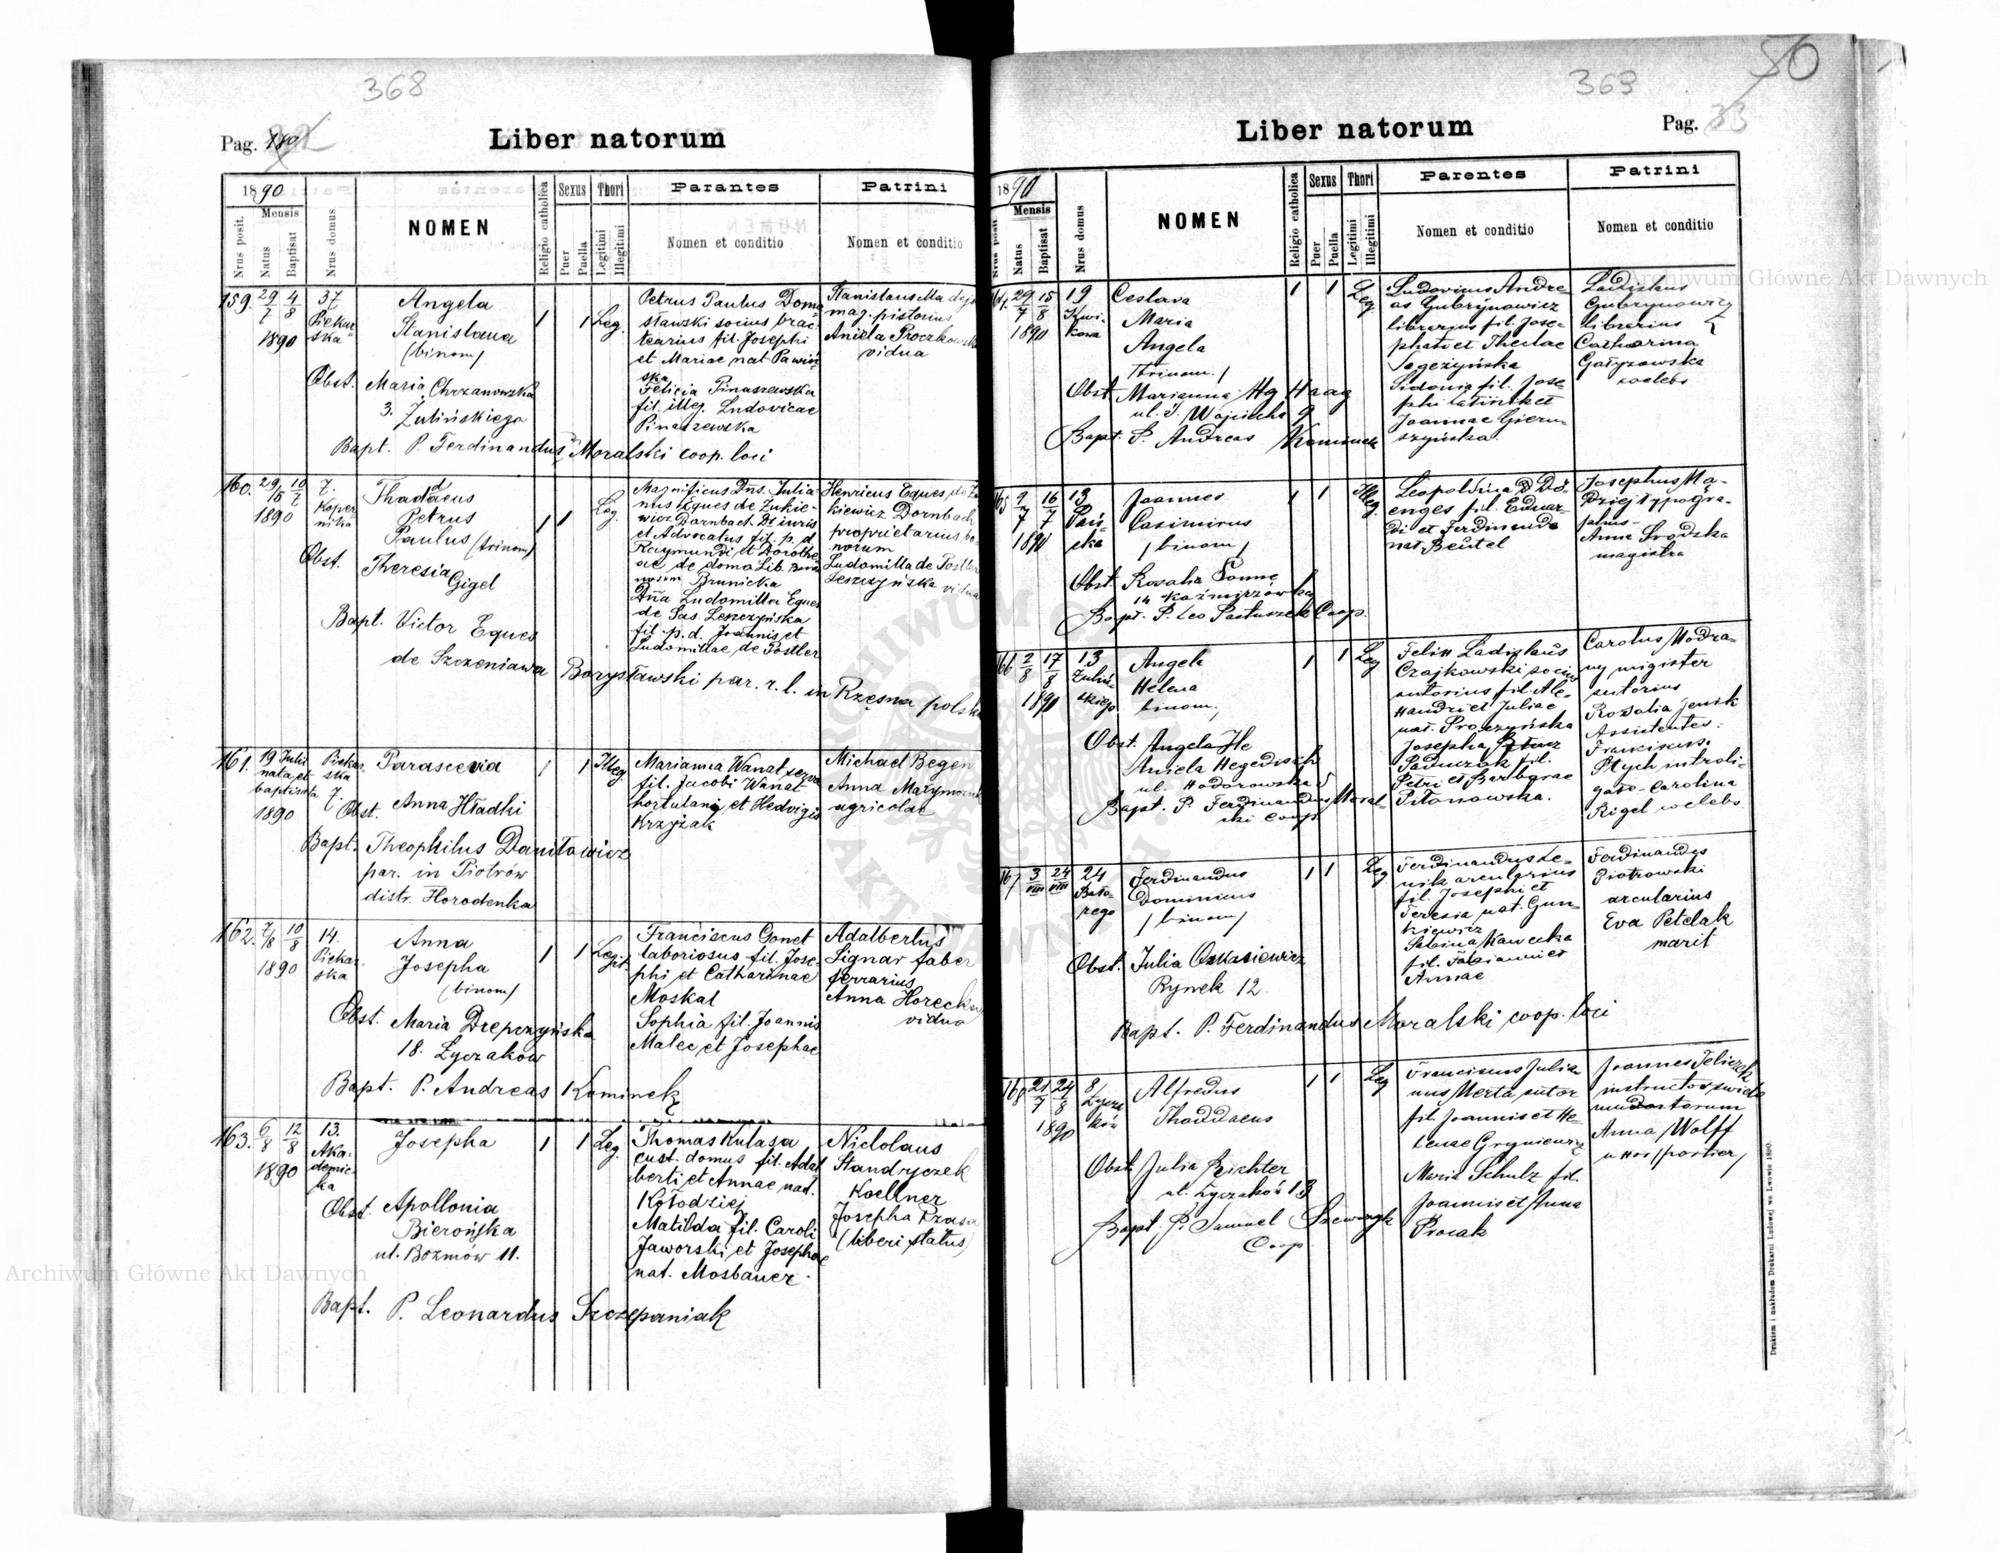 368
Pag.
Liber natorum
1890
Mensis
Nrus posit.
Natus
Baptisat
Nrus domus
NOMEN
Religio catholica
Sexus
Puer
Puella
Thori
Legitimi
Illegitimi
Parantes
Nomen et conditio
Patrini
Nomen et conditio
159. 29/7 4/8 1890
37 Piekar-
ska
Angela
Stanislaua
(binom)
1 1 Leg.
Petrus Paulus Doma
sławski socius brac-
tearius fil. Josephi
et Mariae nat Pawiń
ska
Felicia Pinaszewska
fil. illeg. Ludovicae
Pinaszewska
Stanislaus Ma
mag. pistorius
Aniela
vidua
Obst. Maria Chrzanowska
3. Żulińskiego
Bapt. P. Ferdinandus Moralski coop. loci
160. 1890
7. Koper-
nika
Thaddaeus
Petrus
Paulus (trinom)
1 1 Leg.
Magnificus Dns. Julia-
nus Eques de Zukie-
wicz Dornbach Dr iuris
et Advocatus fil. p. d.
Raymundi et Dorothe-
ae de domo Lib.
Brunicka
Dna Ludomilla Eques
de Sas Leszczyńska
fil. p. d. Joannis et
Ludomillae de Postler
Henricus Eques de Zu
kiewicz Dornbach
proprietarius bo-
norum
Ludomilla de Postler
Leszczyńska vidua
Obst. Theresia
Gigel
Bapt. Victor Eques
de Szczeniawa Borysławski par. r. l. in Rzęsna polska
161. 19 Julii
nata et
baptisata
1890
Piekar-
ska
7.
Parascevia
1 1 Illeg.
Marianna Wanat
fil. Jacobi Wanat
hortulani et Hedvigis
Krzyżak
Michael Begen
Anna
agricolae
Obst. Anna Hładki
Bapt. Theophilus Daniłowicz
par. in Piotrów
distr. Horodenka
162. 7/8 10/8 1890
14. Piekar-
ska
Anna
Josepha
(binom)
1 1 Legit.
Franciscus Gonet
laboriosus fil. Jose-
phi et Catharinae
Moskal
Sophia fil. Joannis
Malec et Josephae
Adalbertus
Signar faber
ferrarius
Anna Horecka
vidua
Obst. Maria Drepczyńska
18. Łyczaków
Bapt. P. Andreas Kominek
163. 6/8 12/8 1890
13. Aka-
demic-
ka
Josepha
1 1 Leg.
Thomas Kulasa
cust. domus fil. Adal
berti et Annae nat.
Kołodziej
Matilda fil. Caroli
Jaworski et Josephae
nat. Mosbauer.
Nicolaus
Standryczek
Koellner
Josepha Rzasa
(liberi status)
Obst. Apollonia
Bierońska
ul. Bozmów 11.
Bapt. P. Leonardus Szczepaniak
369
50
Liber natorum
Pag. 33
1890
Mensis
Nrus posit
Natus
Baptisat
Nrus domus
NOMEN
Religio catholica
Sexus
Puer
Puella
Thori
Legitimi
Illegitimi
Parentes
Nomen et conditio
Patrini
Nomen et conditio
164. 29/7 15/8 1890
19
Ceslava
Maria
Angela
Trinom.)
1 1 Leg
Ludovicus Andre
as Gubrynowicz
librarius fil. Jose-
phati et Theclae
Sidonia fil. Jose-
phi et
Joannae
Ladislaus
Gubrynowicz
librarius
Catharina
coelebs
Obst. Marianna Hg Haag
ul. S. Wojciecha 9
Bapt. P. Andreas Kominek
165 7/7 16/7 1890
13 Pań-
ska
Joannes
Casimirus
(binom)
1 1 Illeg
Leopoldina
fil. Eduar-
di et Ferdinanda
nat. Beutel
Josephus Ma-
typogra-
phus
Anna Srodska
magistra
Obst. Rosalia Sonne
14 Kaźmirzówka
Bapt. P. Leo Pastuszek Coop.
166 2/8 17/8 1890
13 Żuliń-
skiego
Angela
Helena
binom.
1 1 Leg
Felix Ladislaus
Czajkowski socius
sutorius fil. Ale-
xandri et Juliae
nat.
Josepha
fil.
Petri et Barbarae
Pitonowska.
Carolus Modra-
ny magister
sutorius
Rosalia Jenik
Assistentes:
Franciscus
Ptych introli-
gator Carolina
Rigel coelebs.
Obst. Angela He
Aniela Hegedusch
ul. Hodorowska 5
Bapt. P. Ferdinandus Moral
ski Coop.
167 3/VIII 24/VIII
24 Bato-
rego
Ferdinandus
Dominicus
(binom)
1 1 Leg
Ferdinandus Le-
nik arcularius
fil. Josephi et
Teresia nat. Gun-
kiewicz
Sabina Kawecka
fil. Fabianni et
Annae
Ferdinandus
Piotrowski
arcularius
Eva Petelak
marit
Obst. Julia
Rynek 12.
Bapt. P. Ferdinandus Moralski coop. loci
168 21/7 24/8 1890
8/ Łycza
ków
Alfredus
Thaddaeus
1 1 Leg
Franciscus Julia
nus Merta sutor
fil Joannis et He-
lenae Gryniewicz
Maria Schulz fil.
Joannis et Anna
Prorak
Joannes
instructor
Anna Wolff
uxor (portier)
Obst Julia Richter
ul. Łyczaków 13
Bapt. P. Samuel Szewczyk
Coop
Drukiem i nakładem Drukarni Ludowej we Lwowie 1890.
Archiwum Główne Akt Dawnych
Archiwum Główne Akt Dawnych
ARCHIWUM GŁÓWNE AKT DAWNYCH